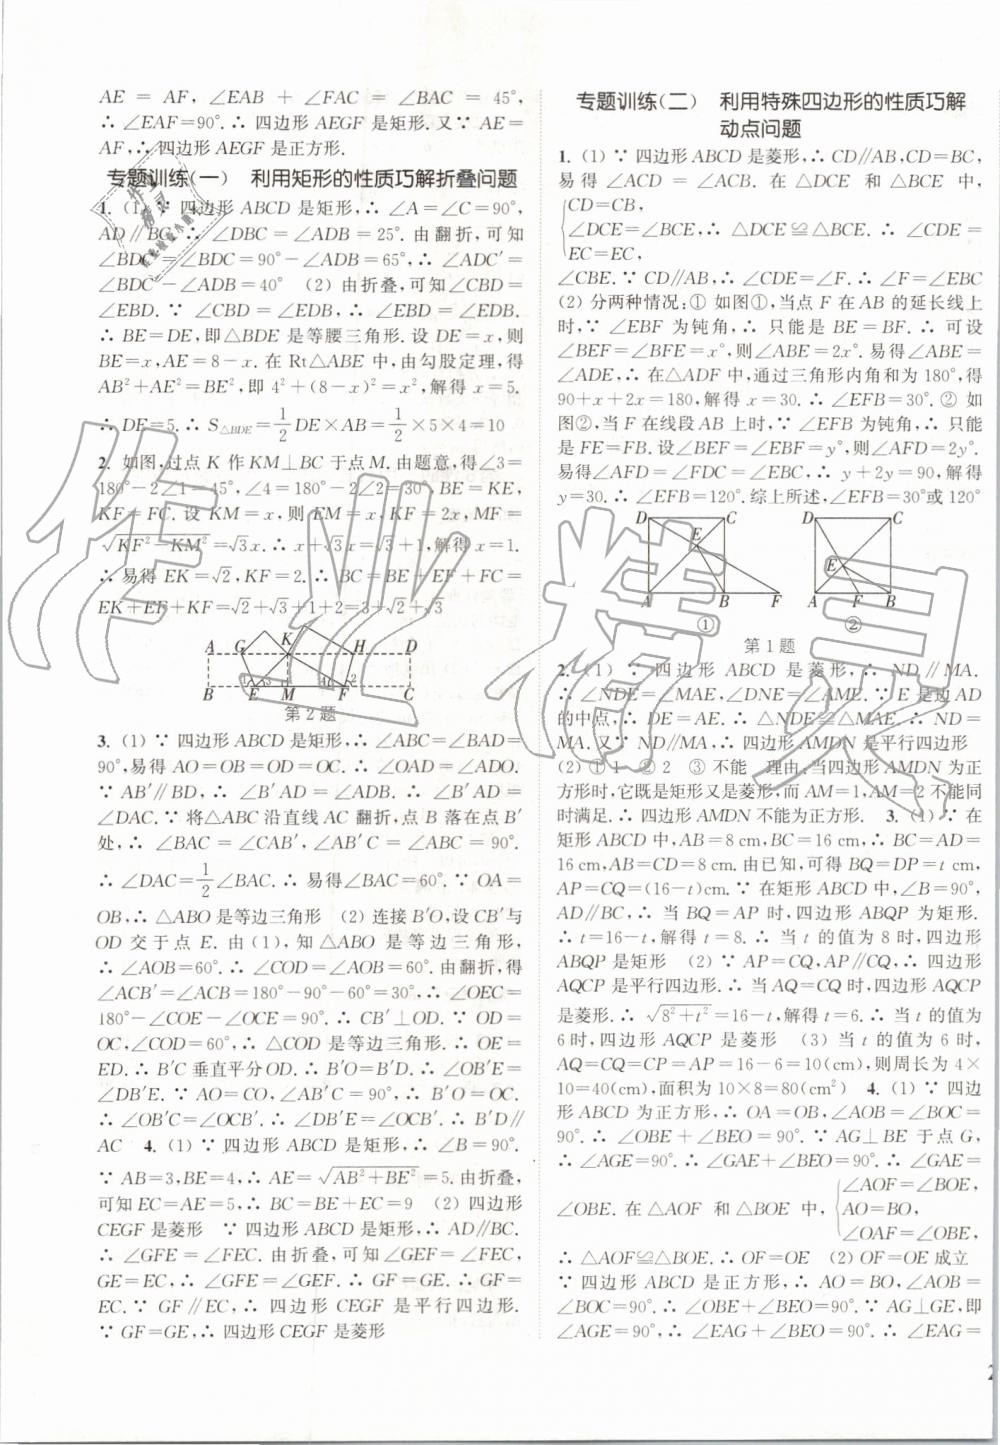 AE = AF, ∠EAB + ∠FAC = ∠BAC = 45°,
∴ ∠EAF=90°. ∴ 四边形 AEGF 是矩形. 又∵ AE=
AF, ∴ 四边形 AEGF 是正方形.
专题训练(一) 利用矩形的性质巧解折叠问题
1. (1) ∵ 四边形 ABCD 是矩形, ∴ ∠A=∠C=90°,
AD∥BC. ∴ ∠DBC=∠ADB=25°. 由翻折,可知
∠BDC′=∠BDC=90°-∠ADB=65°, ∴ ∠ADC′=
∠BDC′-∠ADB=40° (2) 由折叠,可知∠CBD=
∠EBD. ∵ ∠CBD=∠EDB, ∴ ∠EBD=∠EDB.
∴ BE=DE,即△BDE 是等腰三角形. 设 DE=x,则
BE=x,AE=8-x. 在 Rt△ABE 中,由勾股定理,得
AB²+AE²=BE²,即 4²+(8-x)²=x²,解得 x=5.
∴ DE=5. ∴ S△BDE=1/2 DE×AB=1/2×5×4=10
2. 如图,过点 K 作 KM⊥BC 于点 M. 由题意,得∠3=
180°-2∠1=45°,∠4=180°-2∠2=30°,BE=KE,
KF=FC. 设 KM=x,则 EM=x,KF=2x,MF=
√(KF²-KM²)=√3x. ∴ x+√3x=√3+1,解得 x=1.
∴ 易得 EK=√2,KF=2. ∴ BC=BE+EF+FC=
EK+EF+KF=√2+√3+1+2=3+√2+√3
A G K H D
B E M F C
1 3 4 2
第 2 题
3. (1) ∵ 四边形 ABCD 是矩形, ∴ ∠ABC=∠BAD=
90°,易得 AO=OB=OD=OC. ∴ ∠OAD=∠ADO.
∵ AB′∥BD, ∴ ∠B′AD=∠ADB. ∴ ∠B′AD=
∠DAC. ∵ 将△ABC 沿直线 AC 翻折,点 B 落在点 B′
处, ∴ ∠BAC=∠CAB′,∠AB′C=∠ABC=90°.
∴ ∠DAC=1/2∠BAC. ∴ 易得∠BAC=60°. ∵ OA=
OB, ∴ △ABO 是等边三角形 (2) 连接 B′O,设 CB′与
OD 交于点 E. 由(1),知△ABO 是等边三角形,
∴ ∠AOB=60°. ∴ ∠COD=∠AOB=60°. 由翻折,得
∠ACB′=∠ACB=180°-90°-60°=30°, ∴ ∠OEC=
180°-∠COE-∠OCE=90°. ∴ CB′⊥OD. ∵ OD=
OC,∠COD=60°, ∴ △COD 是等边三角形. ∴ OE=
ED. ∴ B′C 垂直平分 OD. ∴ B′O=B′D. ∴ ∠OB′E=
∠DB′E. ∵ AO=CO,∠AB′C=90°, ∴ B′O=OC.
∴ ∠OB′C=∠OCB′. ∴ ∠DB′E=∠OCB′. ∴ B′D∥
AC 4. (1) ∵ 四边形 ABCD 是矩形, ∴ ∠B=90°.
∵ AB=3,BE=4, ∴ AE=√(AB²+BE²)=5. 由折叠,
可知 EC=AE=5, ∴ BC=BE+EC=9 (2) 四边形
CEGF 是菱形 ∵ 四边形 ABCD 是矩形, ∴ AD∥BC.
∴ ∠GFE=∠FEC. 由折叠,可知∠GEF=∠FEC,
GE=EC, ∴ ∠GFE=∠GEF. ∴ GF=GE. ∴ GF=
EC. ∵ GF∥EC, ∴ 四边形 CEGF 是平行四边形.
∵ GF=GE, ∴ 四边形 CEGF 是菱形
专题训练(二) 利用特殊四边形的性质巧解
动点问题
1. (1) ∵ 四边形 ABCD 是菱形, ∴ CD∥AB,CD=BC,
易得 ∠DCA=∠BCA. 在 △DCE 和 △BCE 中,
{CD=CB,
∠DCE=∠BCE, ∴ △DCE≌△BCE. ∴ ∠CDE=
EC=EC,
∠CBE. ∵ CD∥AB, ∴ ∠CDE=∠F. ∴ ∠F=∠EBC
(2) 分两种情况:① 如图①,当点 F 在 AB 的延长线上
时, ∵ ∠EBF 为钝角, ∴ 只能是 BE=BF. ∴ 可设
∠BEF=∠BFE=x°,则∠ABE=2x°. 易得∠ABE=
∠ADE, ∴ 在△ADF 中,通过三角形内角和为 180°,得
90+x+2x=180,解得 x=30. ∴ ∠EFB=30°. ② 如
图②,当 F 在线段 AB 上时, ∵ ∠EFB 为钝角, ∴ 只能
是 FE=FB. 设∠BEF=∠EBF=y°,则∠AFD=2y°.
易得∠AFD=∠FDC=∠EBC, ∴ y+2y=90,解得
y=30. ∴ ∠EFB=120°. 综上所述,∠EFB=30°或 120°
D C E A B F ①
D C E A F B ②
第 1 题
2. (1) ∵ 四边形 ABCD 是菱形, ∴ ND∥MA.
∴ ∠NDE=∠MAE,∠DNE=∠AME. ∵ E 是边 AD
的中点, ∴ DE=AE. ∴ △NDE≌△MAE. ∴ ND=
MA. 又∵ ND∥MA, ∴ 四边形 AMDN 是平行四边形
(2) ① 1 ② 2 ③ 不能 理由:当四边形 AMDN 为正
方形时,它既是矩形又是菱形,而 AM=1,AM=2 不能同
时满足. ∴ 四边形 AMDN 不能为正方形. 3. (1) ∵ 在
矩形 ABCD 中,AB=8 cm,BC=16 cm, ∴ BC=AD=
16 cm,AB=CD=8 cm. 由已知,可得 BQ=DP=t cm,
AP=CQ=(16-t)cm. ∵ 在矩形 ABCD 中,∠B=90°,
AD∥BC, ∴ 当 BQ=AP 时,四边形 ABQP 为矩形.
∴ t=16-t,解得 t=8. ∴ 当 t 的值为 8 时,四边形
ABQP 是矩形 (2) ∵ AP=CQ,AP∥CQ, ∴ 四边形
AQCP 是平行四边形. ∴ 当 AQ=CQ 时,四边形 AQCP
是菱形. ∴ √(8²+t²)=16-t,解得 t=6. ∴ 当 t 的值为
6时,四边形 AQCP 是菱形 (3) 当 t 的值为 6 时,
AQ=CQ=CP=AP=16-6=10(cm),则周长为 4×
10=40(cm),面积为 10×8=80(cm²) 4. (1) ∵ 四边
形 ABCD 为正方形, ∴ OA=OB,∠AOB=∠BOC=
90°. ∴ ∠OBE+∠BEO=90°. ∵ AG⊥BE 于点 G,
∴ ∠AGE=90°. ∴ ∠GAE+∠BEO=90°. ∴ ∠GAE=
∠OBE. 在 △AOF 和 △BOE 中, {∠AOF=∠BOE,
AO=BO,
∠OAF=∠OBE,
∴ △AOF≌△BOE. ∴ OF=OE (2) OF=OE 成立
∵ 四边形 ABCD 是正方形, ∴ AO=BO,∠AOB=
∠BOC=90°. ∴ ∠OBE+∠BEO=90°. ∵ AG⊥GE,即
∠AGE=90°, ∴ ∠EAG+∠BEO=90°. ∴ ∠EAG=
作业精灵